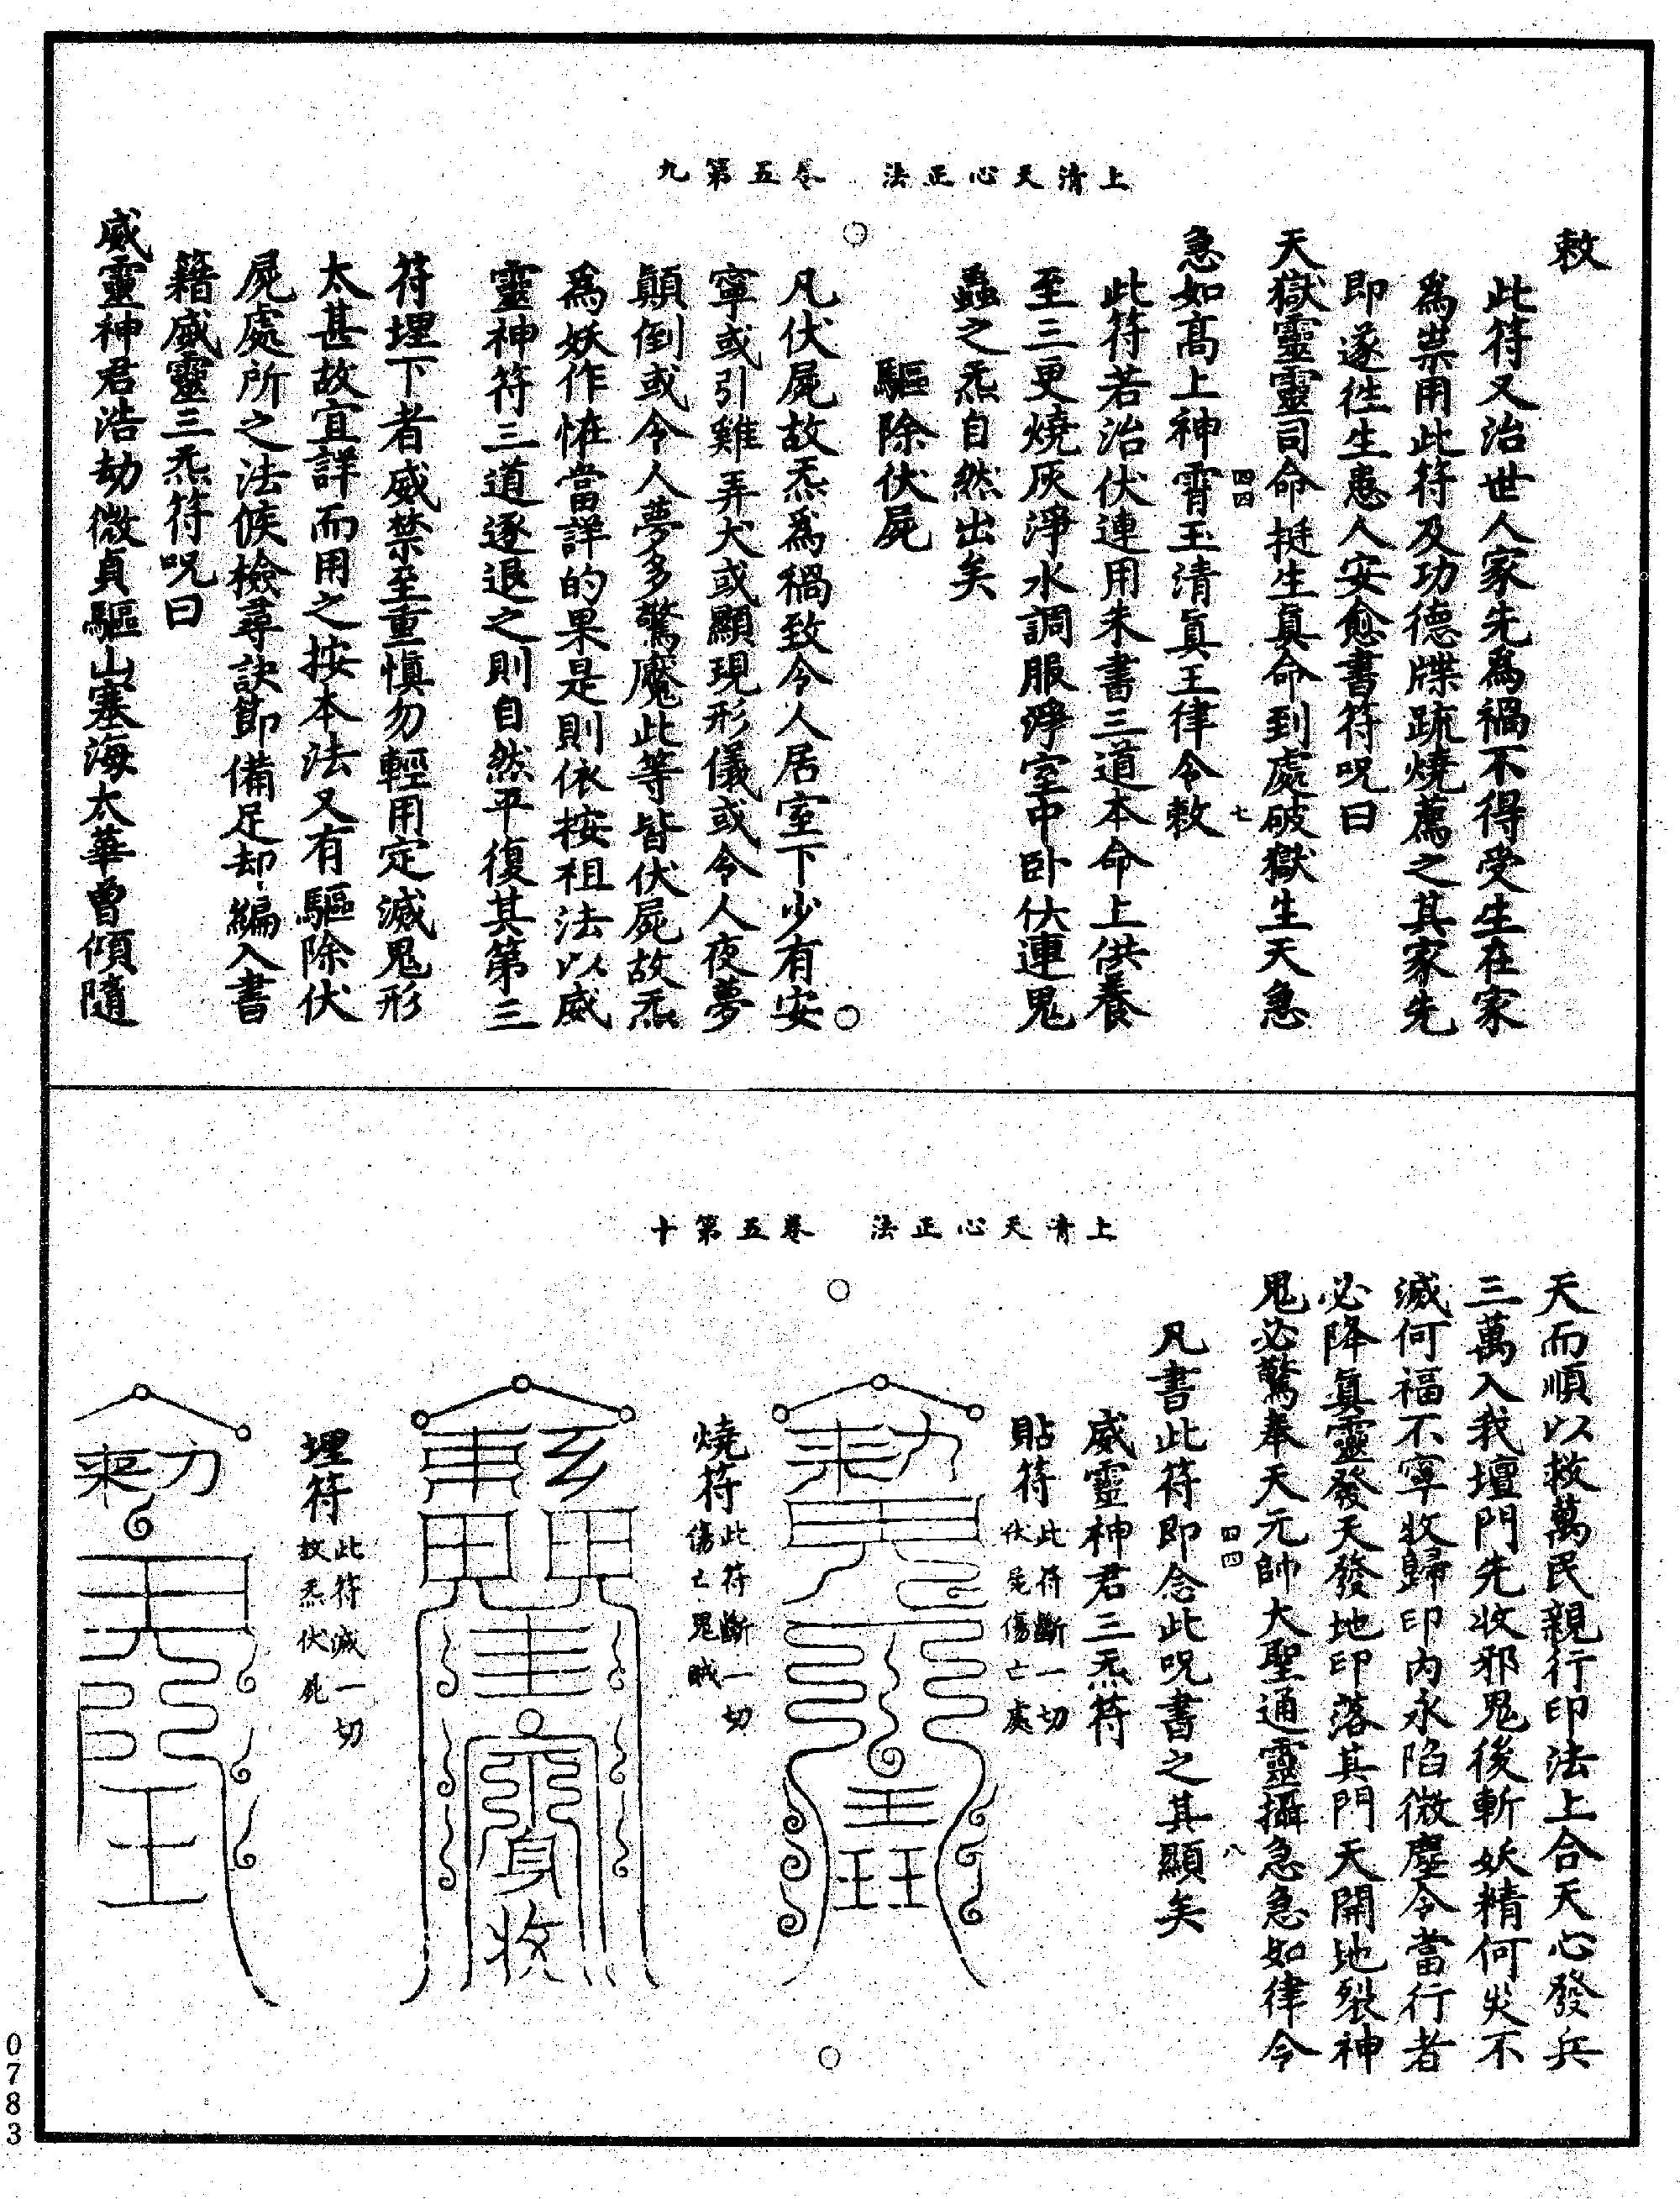 上清天心正法　卷五第九
敕
此符又治世人家先爲禍不得受生在家
爲祟用此符及功德牒疏燒薦之其家先
即遂徃生患人安愈書符呪曰
天獄靈靈司命挺生眞命到處破獄生天急
四四　七
急如高上神霄玉清眞王律令敕
此符若治伏連用朱書三道本命上供養
至三更燒灰淨水調服淨室中卧伏連鬼
蟲之炁自然出矣
驅除伏屍
凡伏屍故炁爲禍致令人居室下少有安
寧或引雞弄犬或顯現形儀或令人夜夢
顛倒或令人夢多驚魘此等皆伏屍故炁
爲妖作恠當詳的果是則依按祖法以威
靈神符三道逐退之則自然平復其第三
符埋下者威禁至重愼勿輕用定滅鬼形
太甚故宜詳而用之按本法又有驅除伏
屍處所之法候檢尋訣節備足却編入書
籍威靈三炁符呪曰
威靈神君浩劫微貞驅山塞海太華曾傾隨
上清天心正法　卷五第十
天而順以救萬民親行印法上合天心發兵
三萬入我壇門先收邪鬼後斬妖精何災不
滅何福不寧收歸印內永陷微塵令當行者
必降眞靈發天發地印落其門天開地裂神
鬼必驚奉天元帥大聖通靈攝急急如律令
四四　八
凡書此符即念此呪書之其顯矣
威靈神君三炁符
貼符
此符斷一切
伏屍傷亡處
燒符
此符斷一切
傷亡鬼賊
埋符
此符滅一切
故炁伏屍
0783